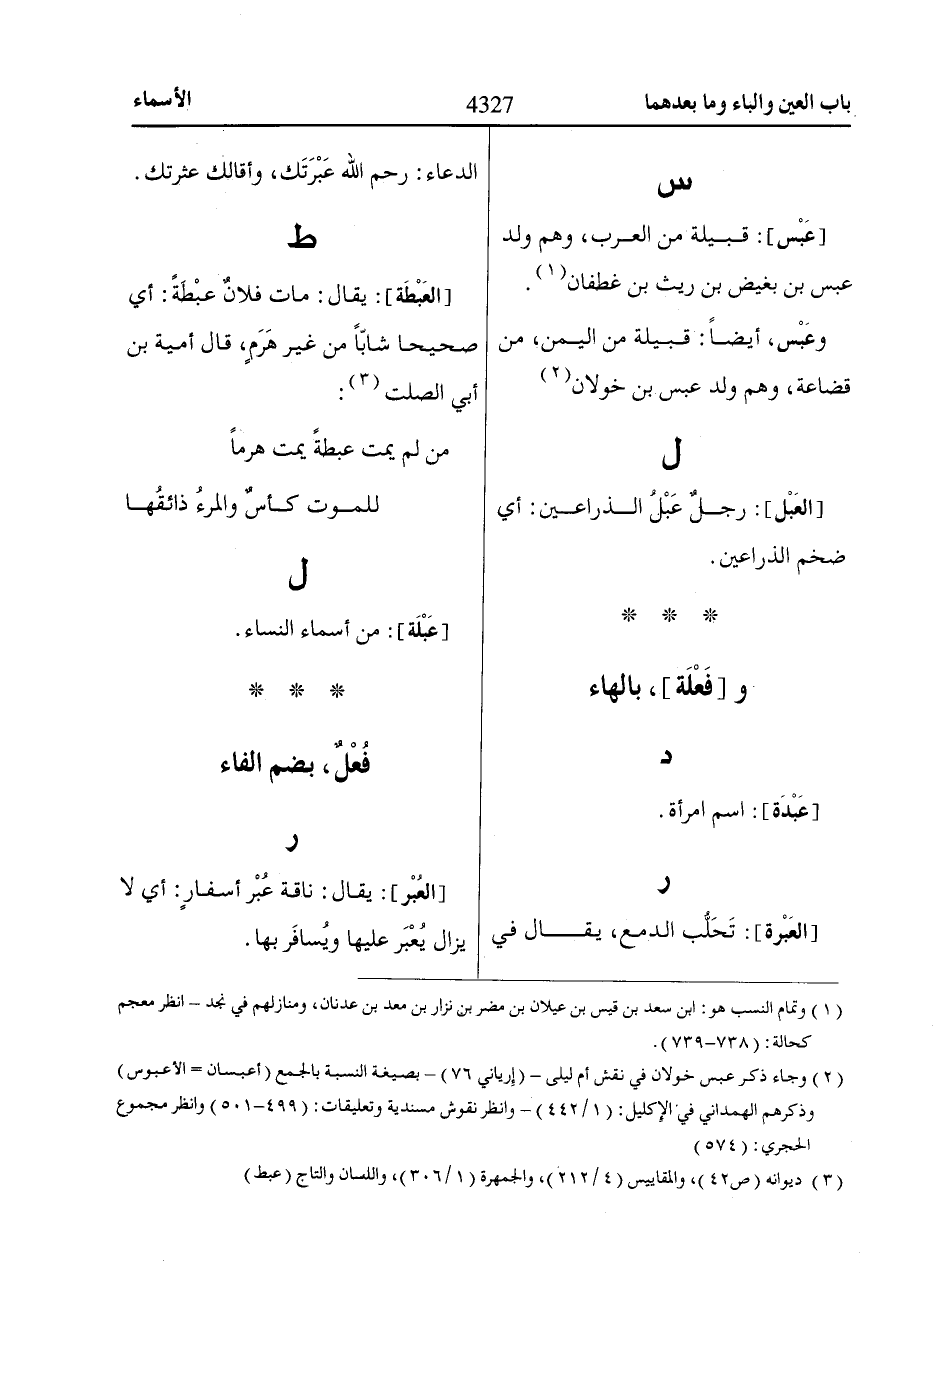 باب العين والباء وما بعدهما
4327
الأسماء
س
[عَبْس]: قبيلة من العرب، وهم ولد
عبس بن بغيض بن ريث بن غطفان(١).
وعَبْس، أيضاً: قبيلة من اليمن، من
قضاعة، وهم ولد عبس بن خولان(٢)
ل
[العَبْل]: رجلٌ عَبْلُ الذراعين: أي
ضخم الذراعين.
* * *
و [فَعْلَة]، بالهاء
د
[عَبْدَة]: اسم امرأة.
ر
[العَبْرة]: تَحَلُّب الدمع، يقال في
الدعاء: رحم الله عَبْرَتَك، وأقالك عثرتك.
ط
[العَبْطَة]: يقال: مات فلانٌ عبْطَةً: أي
صحيحا شابّاً من غير هَرَمٍ، قال أمية بن
أبي الصلت(٣):
من لم يمت عبطةً يمت هرماً
للموت كأسٌ والمرءُ ذائقُها
ل
[عَبْلَة]: من أسماء النساء.
* * *
فُعْلٌ، بضم الفاء
ر
[العُبْر]: يقال: ناقة عُبْر أسفارٍ: أي لا
يزال يُعْبَر عليها ويُسافَر بها.
(١) وتمام النسب هو: ابن سعد بن قيس بن عيلان بن مضر بن نزار بن معد بن عدنان، ومنازلهم في نجد – انظر معجم
كحالة: (٧٣٨–٧٣٩).
(٢) وجاء ذكر عبس خولان في نقش أم ليلى – (إرياني ٧٦) – بصيغة النسبة بالجمع (أعبسان = الأعبوس)
وذكرهم الهمداني في الإكليل: (١/ ٤٤٢) – وانظر نقوش مسندية وتعليقات: (٤٩٩–٥٠١) وانظر مجموع
الحجري: (٥٧٤)
(٣) ديوانه (ص٤٢)، والمقاييس (٤/ ٢١٢)، والجمهرة (١/ ٣٠٦)، واللسان والتاج (عبط)